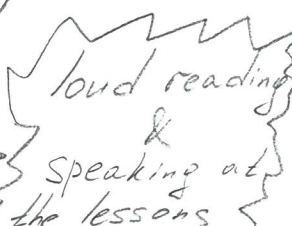 loud reading
&
speaking at
the lessons